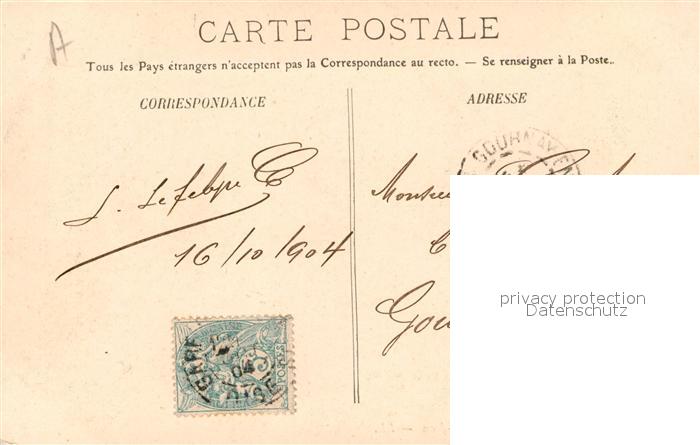 A
CARTE POSTALE
Tous les Pays étrangers n'acceptent pas la Correspondance au recto. — Se renseigner à la Poste..
CORRESPONDANCE
ADRESSE
GOURNAY EN
L. Lefebvre
16/10/904
Monsieu
Gou
privacy protection
Datenschutz
5
04
OISE